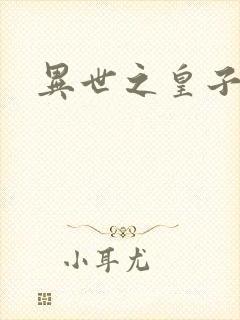 異世之皇子
小耳尤